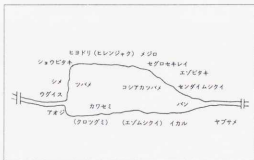 ヒヨドリ (ヒレンジャク) メジロ
ショウビタキ
セグロセキレイ
エゾビタキ
シメ
ツバメ
コシアカツバメ
センダイムシクイ
ウグイス
カワセミ
バン
アオジ
(クロツグミ)
(エゾムシクイ) イカル
ヤブサメ